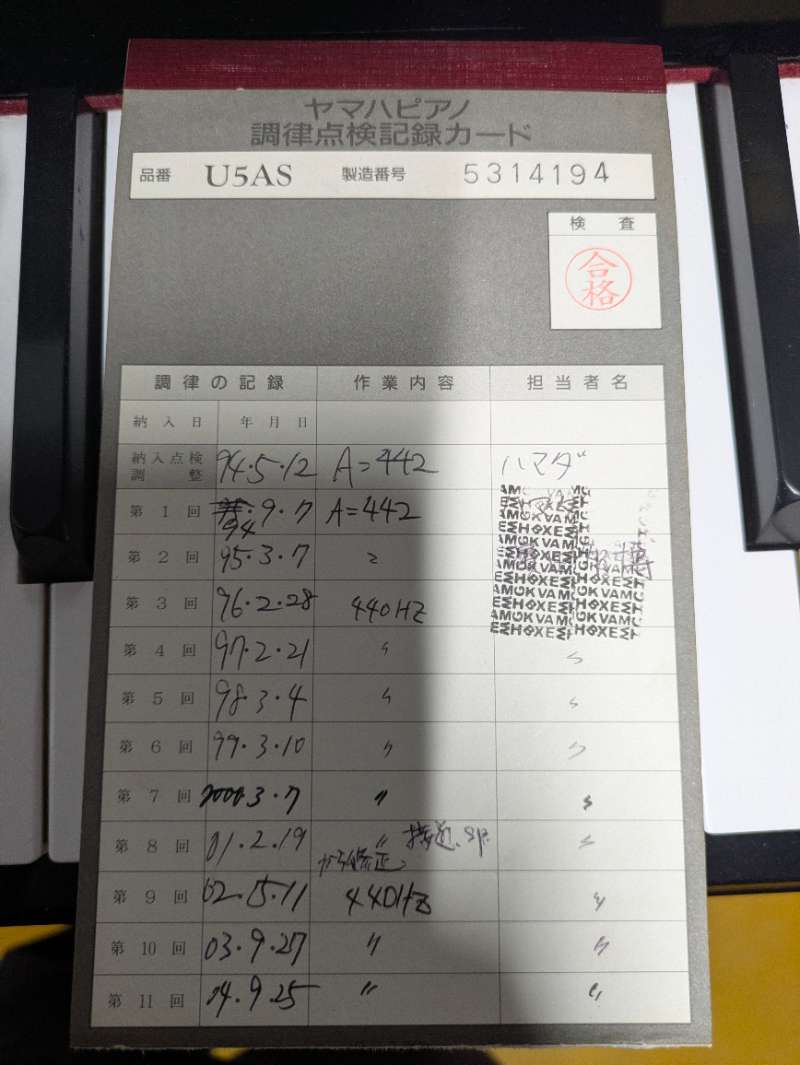 ヤマハピアノ
調律点検記録カード
品番 U5AS 製造番号 5314194
検査
合格
調律の記録 作業内容 担当者名
納入日 年月日
納入点検調整 94.5.12 A=442 ハマダ
第1回 94.9.7 A=442
第2回 95.3.7 〃
第3回 96.2.28 440HZ
第4回 97.2.21 〃 〃
第5回 98.3.4 〃 〃
第6回 99.3.10 〃 〃
第7回 2000.3.7 〃 〃
第8回 01.2.19 〃 修正 〃
第9回 02.5.11 440HZ 〃
第10回 03.9.27 〃 〃
第11回 04.9.25 〃 〃